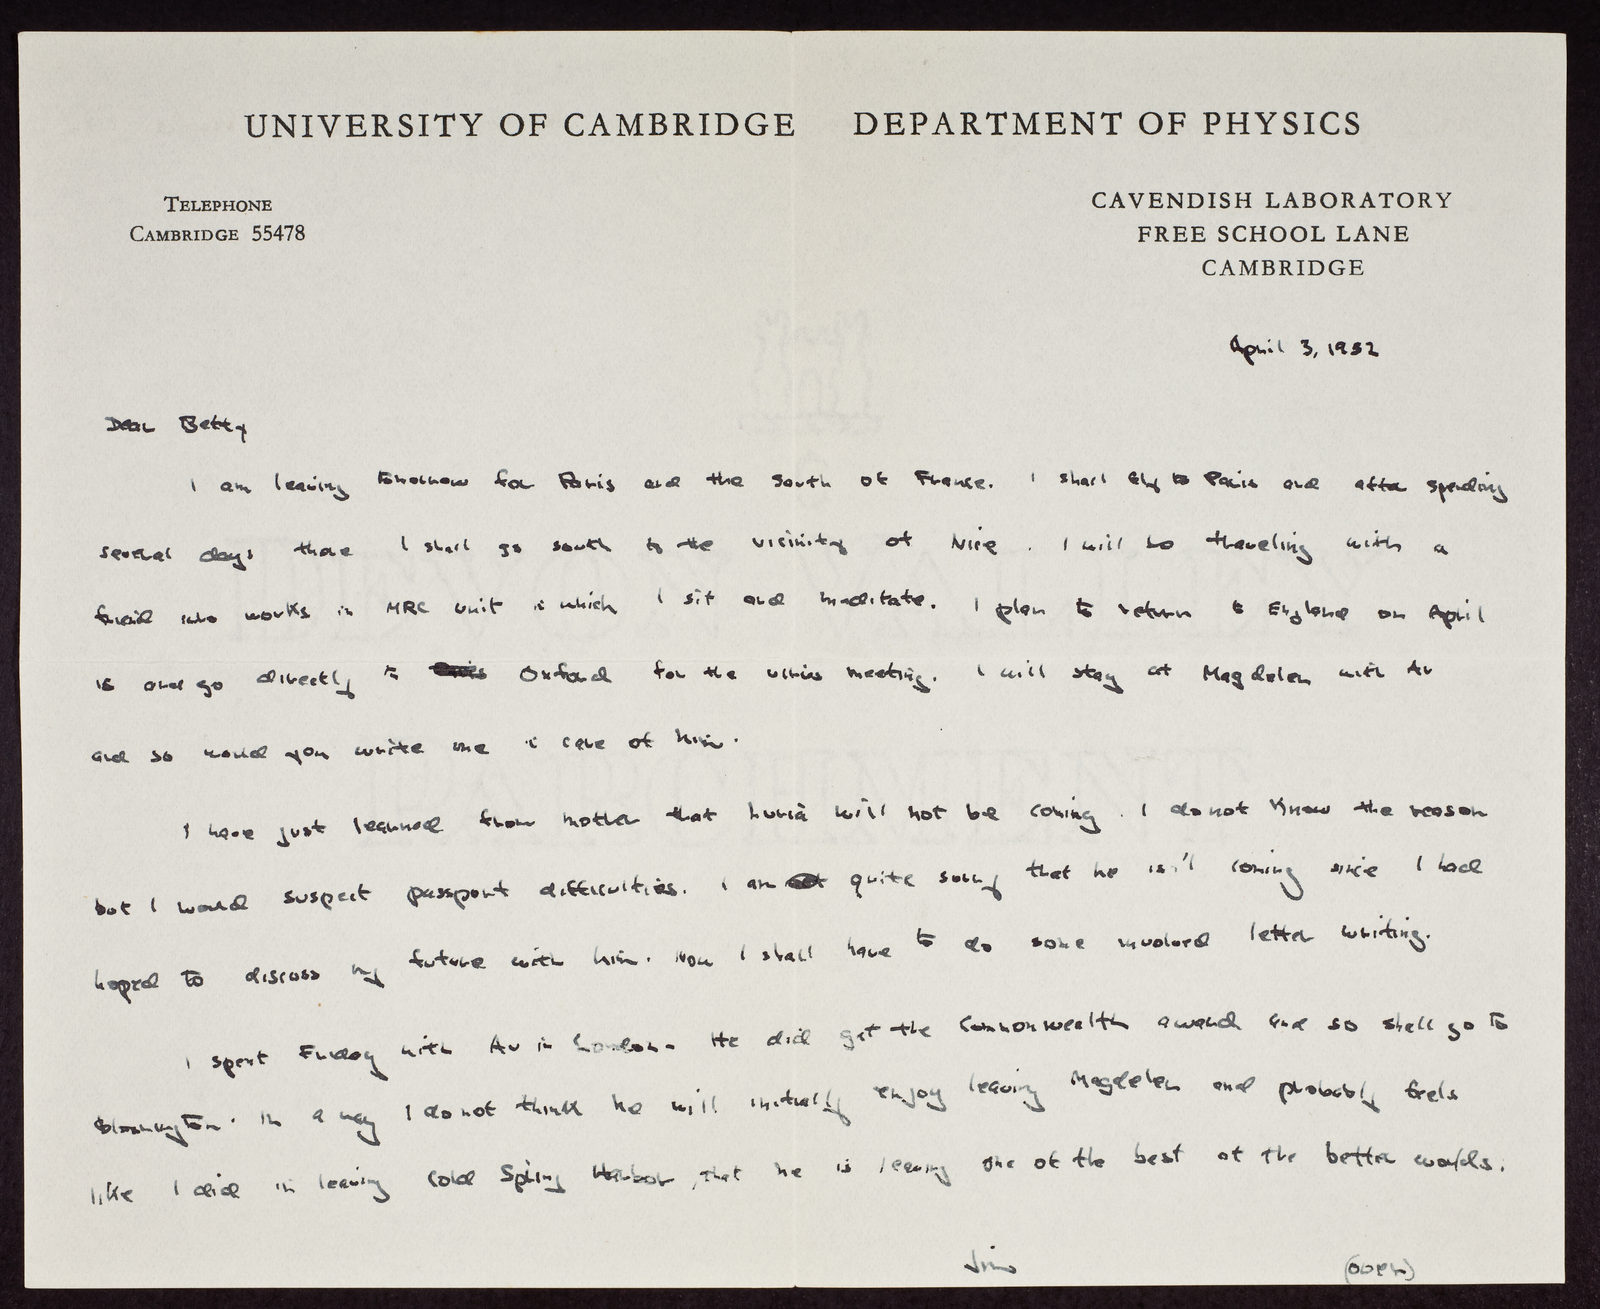 UNIVERSITY OF CAMBRIDGE DEPARTMENT OF PHYSICS
TELEPHONE
CAMBRIDGE 55478
CAVENDISH LABORATORY
FREE SCHOOL LANE
CAMBRIDGE
April 3, 1952
Dear Betty
I am leaving tomorrow for Paris and the South of France. I shall fly to Paris and after spending
several days there I shall go south to the vicinity of Nice. I will be traveling with a
friend who works in MRC unit in which I sit and meditate. I plan to return to England on April
15 and go directly to Oxford for the virus meeting. I will stay at Magdalen with Av
and so would you write me in care of him.
I have just learned from mother that Luria will not be coming. I do not know the reason
but I would suspect passport difficulties. I am quite sorry that he isn't coming since I had
hoped to discuss my future with him. Now I shall have to do some involved letter writing.
I spent Friday with Av in London. He did get the Commonwealth award and so shall go to
Bloomington. In a way I do not think he will initially enjoy leaving Magdalen and probably feels
like I did in leaving Cold Spring Harbor, that he is leaving one of the best of the better worlds.
Jim
(over)